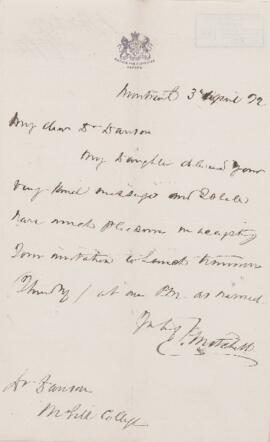 Montreal 3d April 72
My dear Dr Dawson
My Daughter delivered your
very kind message and I shall
have much pleasure in accepting
Your invitation to Lunch tomorrow
Thursday / at one P.M. as named
Yrs truly
P. Mitchell
Dr Dawson
McGill College